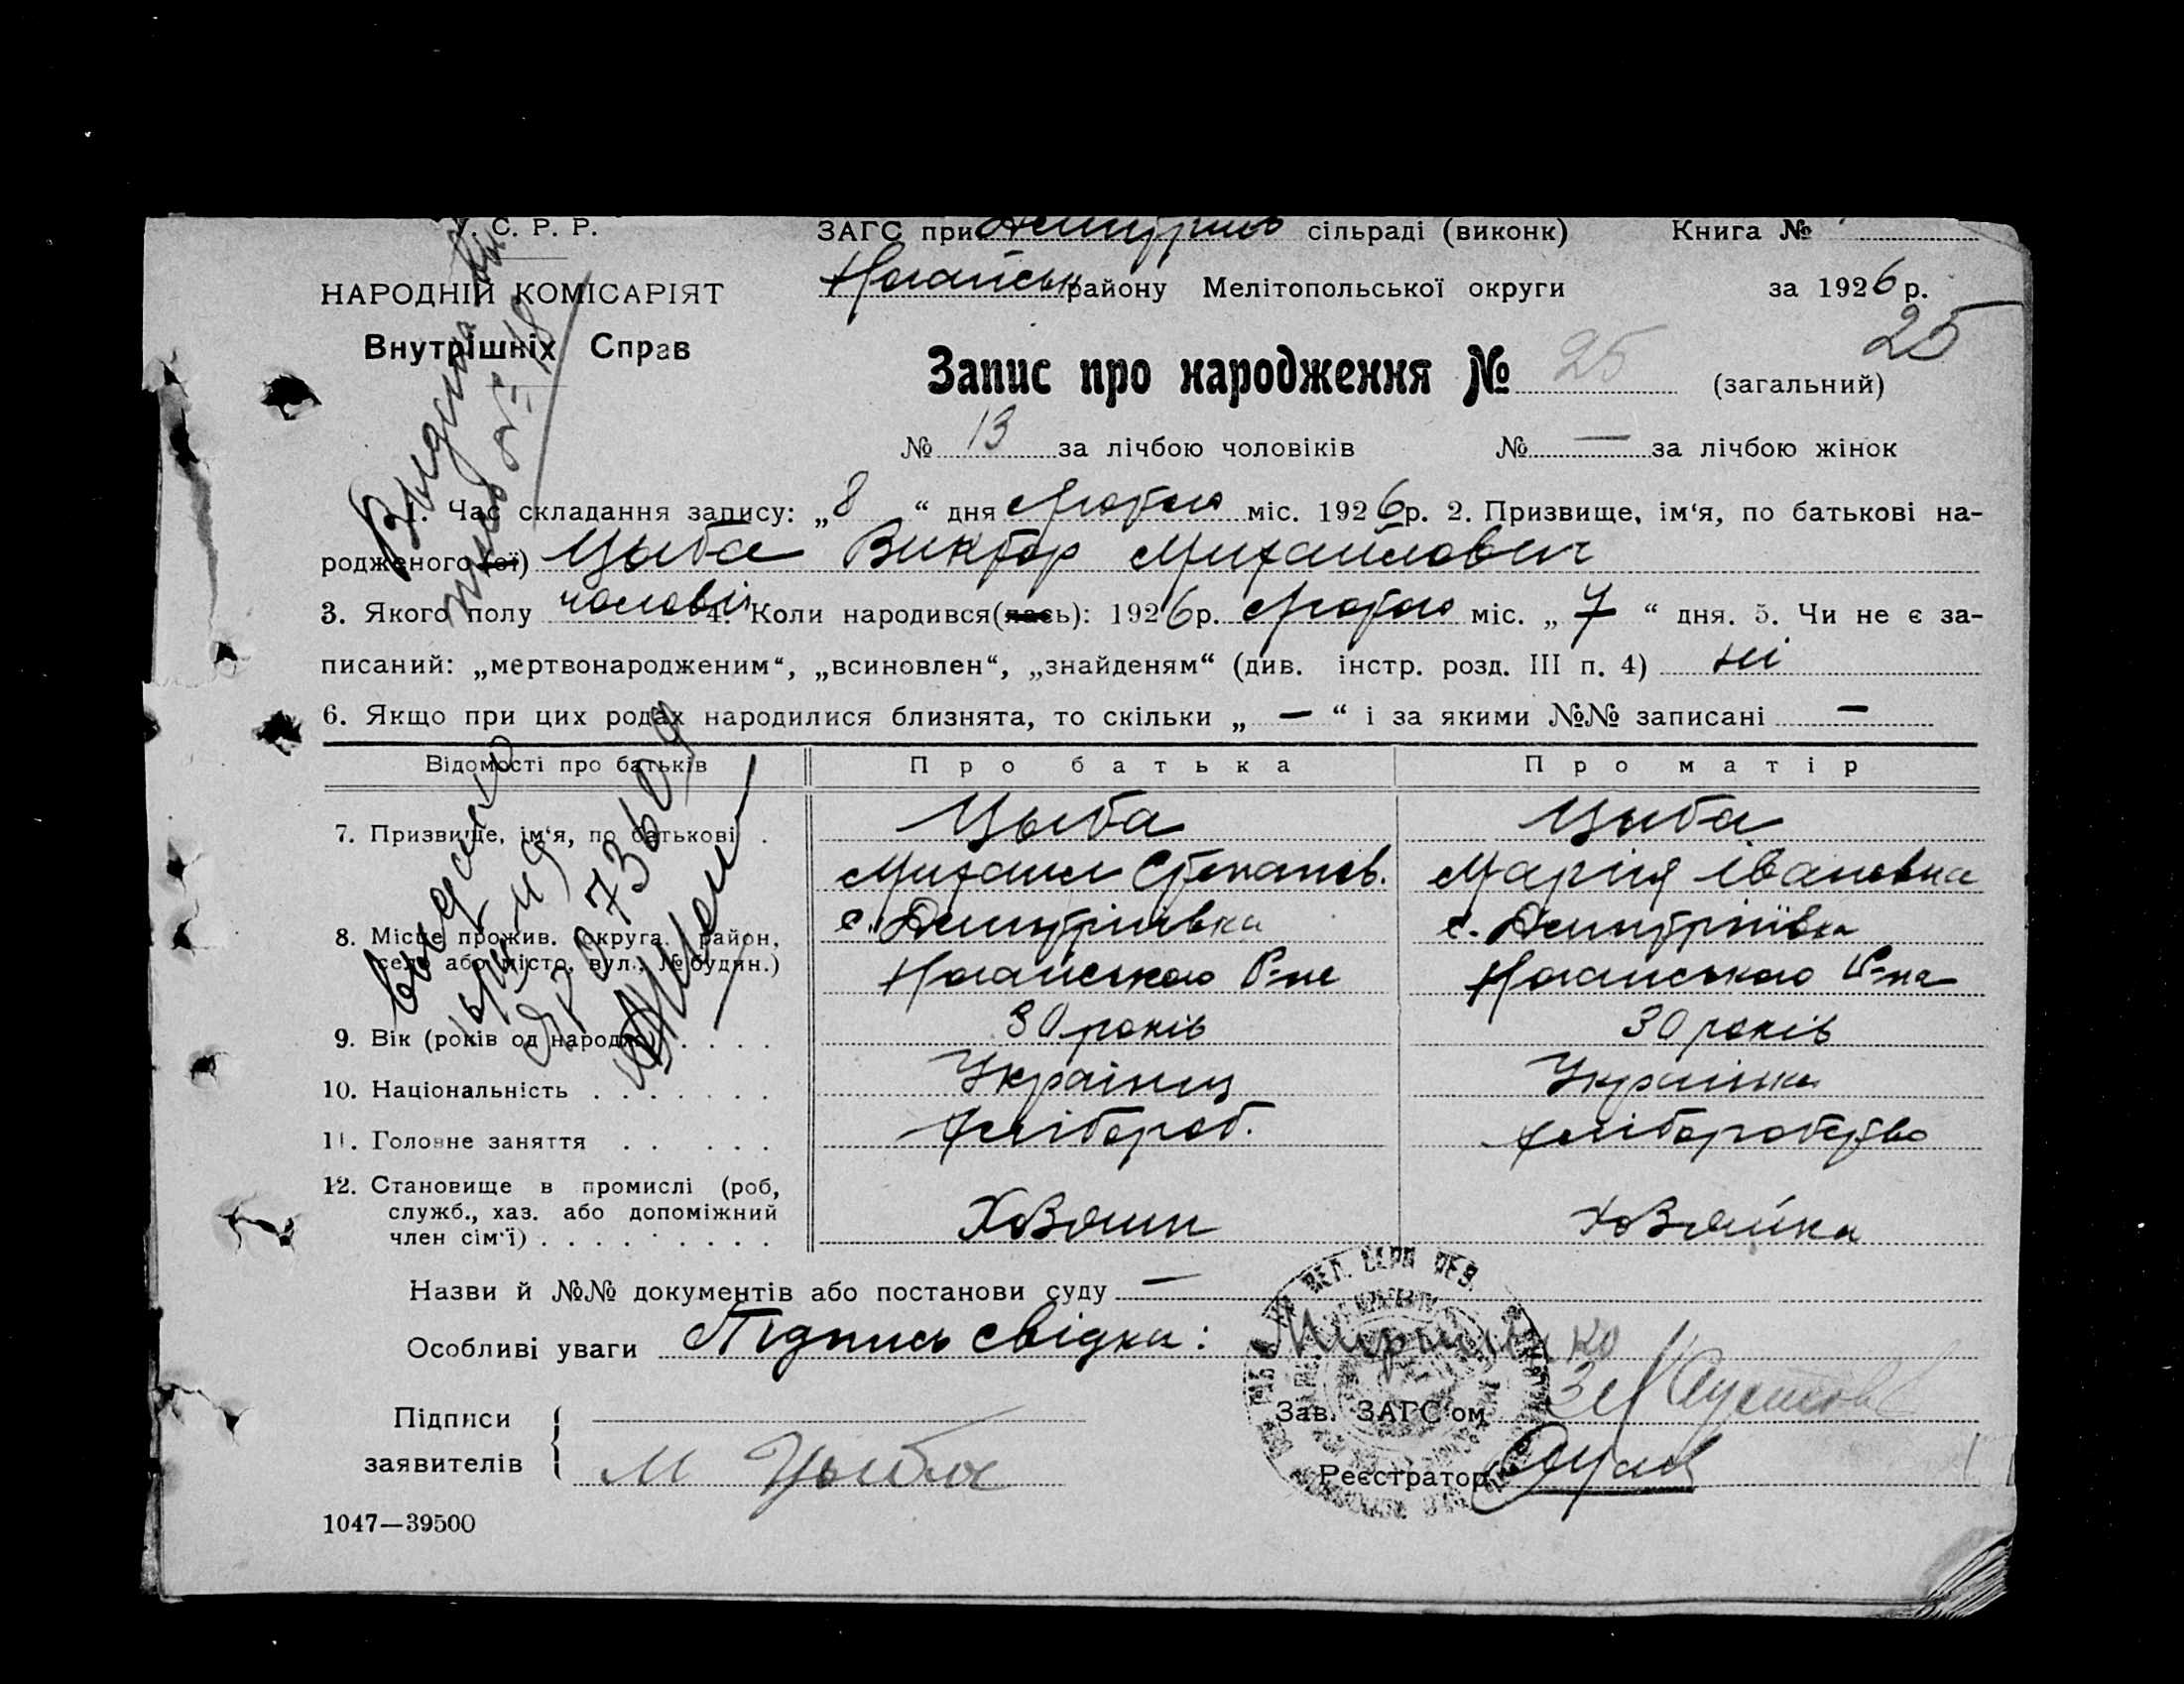 У. С. Р. Р.
НАРОДНІЙ КОМІСАРІЯТ
Внутрішніх Справ
ЗАГС при сільраді (виконк) Книга №
Ногайськ району Мелітопольської округи за 1926 р.
25
Запис про народження № 25 (загальний)
№ 13 за лічбою чоловіків № — за лічбою жінок
1. Час складання запису: „8“ дня лютого міс. 1926 р. 2. Призвище, ім‘я, по батькові на-
родженого(ої) Цыба Виктор Михайлович
3. Якого полу чоловіч 4. Коли народився(лась): 1926 р. лютого міс. „7“ дня. 5. Чи не є за-
писаний: „мертвонародженим“, „всиновлен“, „знайденям“ (див. інстр. розд. III п. 4) ні
6. Якщо при цих родах народилися близнята, то скільки „—“ і за якими №№ записані —
Відомості про батьків Про батька Про матір
7. Призвище, ім‘я, по батькові . Цыба Цыба
Михаил Степанов. Марія Івановна
8. Місце прожив. (округа, район, с. Дмитріївка с. Дмитріївка
село або місто, вул., № будин.) Ногайського Р-не Ногайського Р-на
9. Вік (років од народж.) . . . . 30 років 30 років
10. Національність . . . . . . . Українц Українка
11. Головне заняття . . . . . Хлібороб. хліборобство
12. Становище в промислі (роб,
служб., хаз. або допоміжний
член сім‘ї) . . . . . . . . . Хозяин Хозяйка
Назви й №№ документів або постанови суду —
Особливі уваги Підпись свідка:
Підписи
заявителів М Цыба
Зав. ЗАГС‘ом
Реєстратор
1047—39500